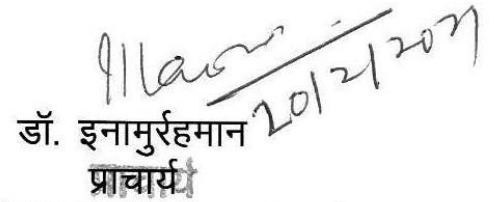 20/2/2021
डॉ. इनामुर्रहमान
प्राचार्य